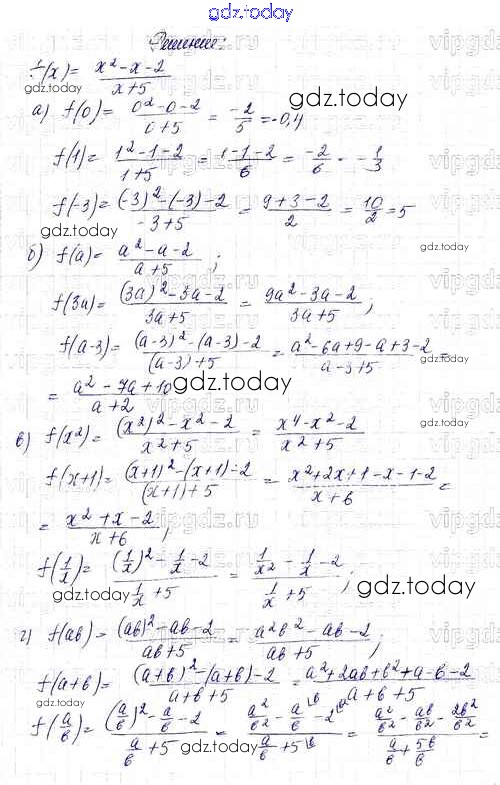 gdz.today
Решение:
f(x) = (x² - x - 2)/(x + 5)
а) f(0) = (0² - 0 - 2)/(0 + 5) = -2/5 = -0,4
gdz.today
f(1) = (1² - 1 - 2)/(1 + 5) = (1 - 1 - 2)/6 = -2/6 = -1/3
f(-3) = ((-3)² - (-3) - 2)/(-3 + 5) = (9 + 3 - 2)/2 = 10/2 = 5
gdz.today
б) f(a) = (a² - a - 2)/(a + 5);
f(3a) = ((3a)² - 3a - 2)/(3a + 5) = (9a² - 3a - 2)/(3a + 5);
f(a-3) = ((a-3)² - (a-3) - 2)/((a-3) + 5) = (a² - 6a + 9 - a + 3 - 2)/(a - 3 + 5) =
= (a² - 7a + 10)/(a + 2)
gdz.today
в) f(x²) = ((x²)² - x² - 2)/(x² + 5) = (x⁴ - x² - 2)/(x² + 5)
f(x+1) = ((x+1)² - (x+1) - 2)/((x+1) + 5) = (x² + 2x + 1 - x - 1 - 2)/(x + 6) =
= (x² + x - 2)/(x + 6);
f(1/x) = ((1/x)² - 1/x - 2)/(1/x + 5) = (1/x² - 1/x - 2)/(1/x + 5);
gdz.today
г) f(ab) = ((ab)² - ab - 2)/(ab + 5) = (a²b² - ab - 2)/(ab + 5);
f(a+b) = ((a+b)² - (a+b) - 2)/(a + b + 5) = (a² + 2ab + b² + a - b - 2)/(a + b + 5)
f(a/b) = ((a/b)² - a/b - 2)/(a/b + 5) = (a²/b² - a/b - 2)/(a/b + 5) = (a²/b² - ab/b² - 2b²/b²)/(a/b + 5b/b) =
gdz.today